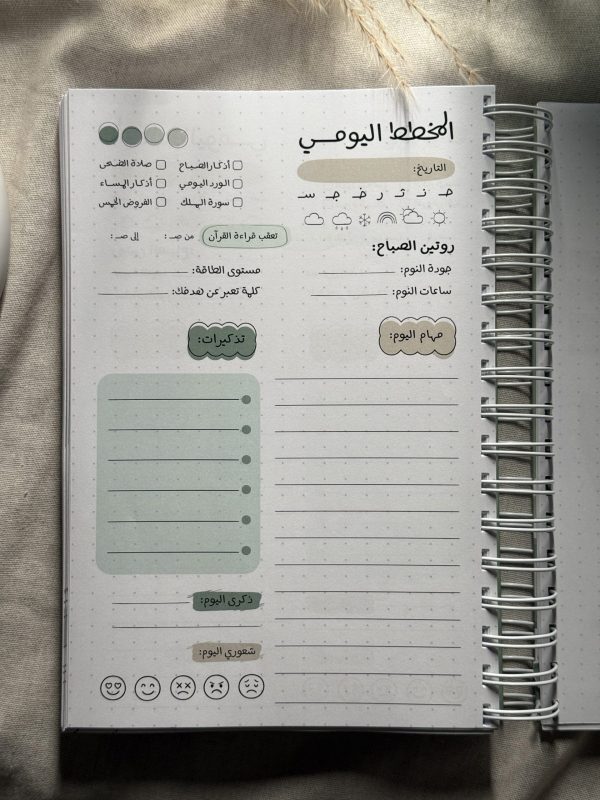 المخطط اليومي
التاريخ:
حـ نـ ثـ ر خـ جـ سـ
روتين الصباح:
جودة النوم:
ساعات النوم:
أذكار الصباح
صلاة الضحى
الورد اليومي
أذكار المساء
سورة الملك
الفروض الخمس
تعقب قراءة القرآن من صـ : إلى صـ :
مستوى الطاقة:
كلمة تعبر عن هدفك:
مهام اليوم:
تذكيرات:
ذكرى اليوم:
شعوري اليوم: